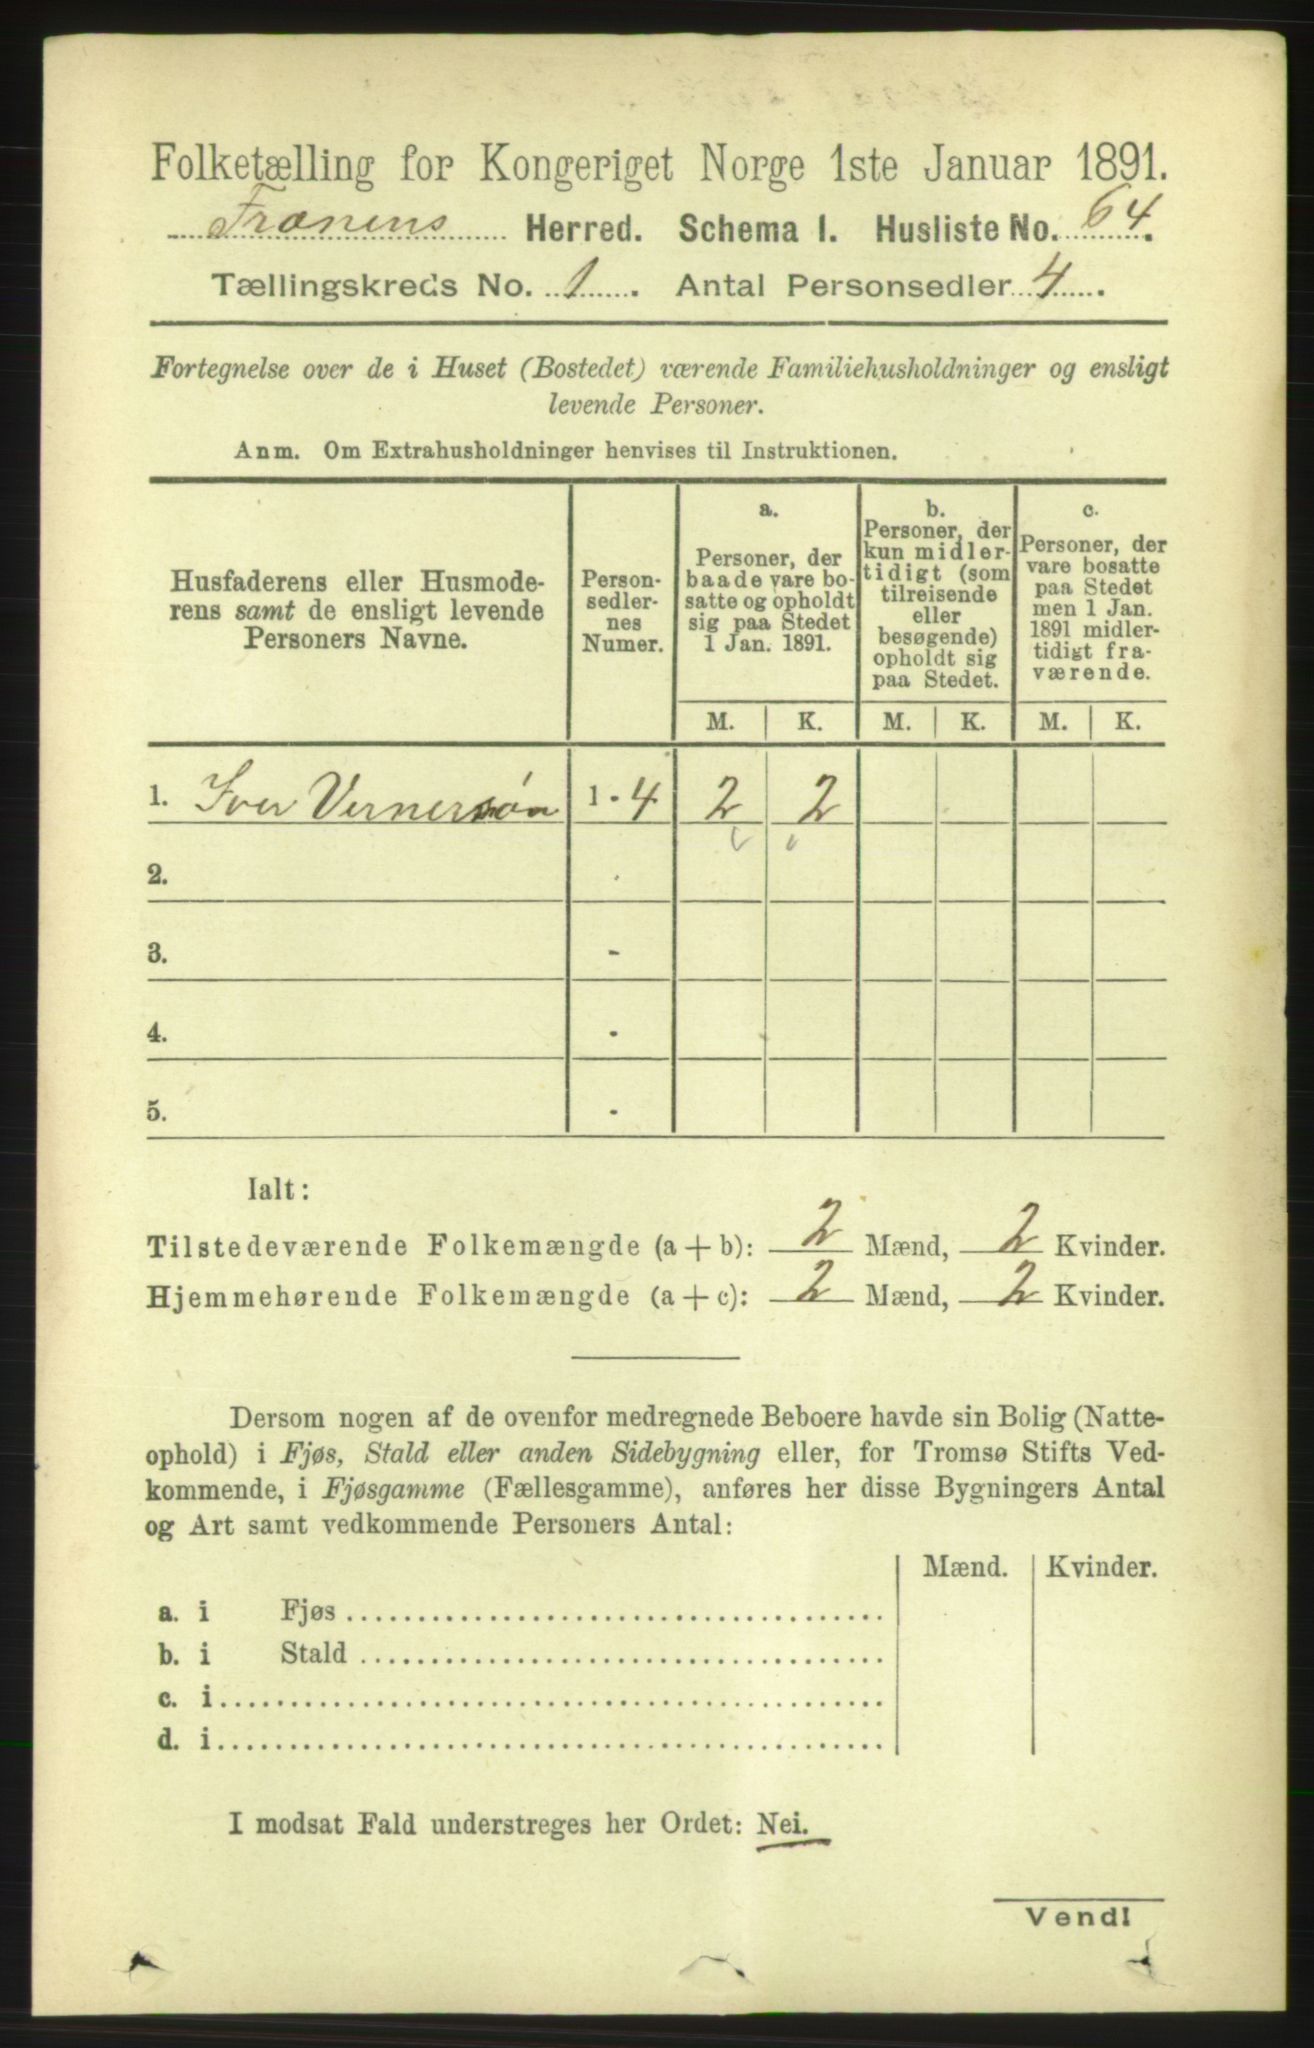 Folketælling for Kongeriget Norge 1ste Januar 1891.
Frænens Herred. Schema I. Husliste No. 64.
Tællingskreds No. 1. Antal Personsedler 4.
Fortegnelse over de i Huset (Bostedet) værende Familiehusholdninger og ensligt
levende Personer.
Anm. Om Extrahusholdninger henvises til Instruktionen.
Husfaderens eller Husmode-
rens samt de ensligt levende
Personers Navne.
Person-
sedler-
nes
Numer.
a.
Personer, der
baade vare bo-
satte og opholdt
sig paa Stedet
1 Jan. 1891.
b.
Personer, der
kun midler-
tidigt (som
tilreisende
eller
besøgende)
opholdt sig
paa Stedet.
c.
Personer, der
vare bosatte
paa Stedet
men 1 Jan.
1891 midler-
tidigt fra-
værende.
M. K. M. K. M. K.
1. Iver Vernersøn 1 - 4 2 2
2.
3. -
4. -
5. -
Ialt:
Tilstedeværende Folkemængde (a + b): 2 Mænd, 2 Kvinder.
Hjemmehørende Folkemængde (a + c): 2 Mænd, 2 Kvinder.
Dersom nogen af de ovenfor medregnede Beboere havde sin Bolig (Natte-
ophold) i Fjøs, Stald eller anden Sidebygning eller, for Tromsø Stifts Ved-
kommende, i Fjøsgamme (Fællesgamme), anføres her disse Bygningers Antal
og Art samt vedkommende Personers Antal:
Mænd. Kvinder.
a. i Fjøs
b. i Stald
c. i
d. i
I modsat Fald understreges her Ordet: Nei.
Vend!